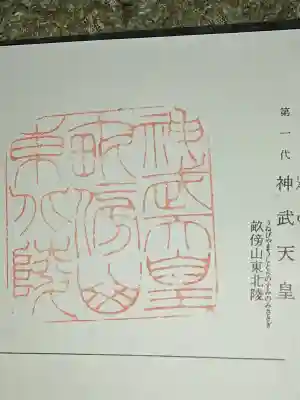 第一代
神武天皇
うねびやまのうしとらのすみのみささぎ
畝傍山東北陵
神武天皇
畝傍山
東北陵